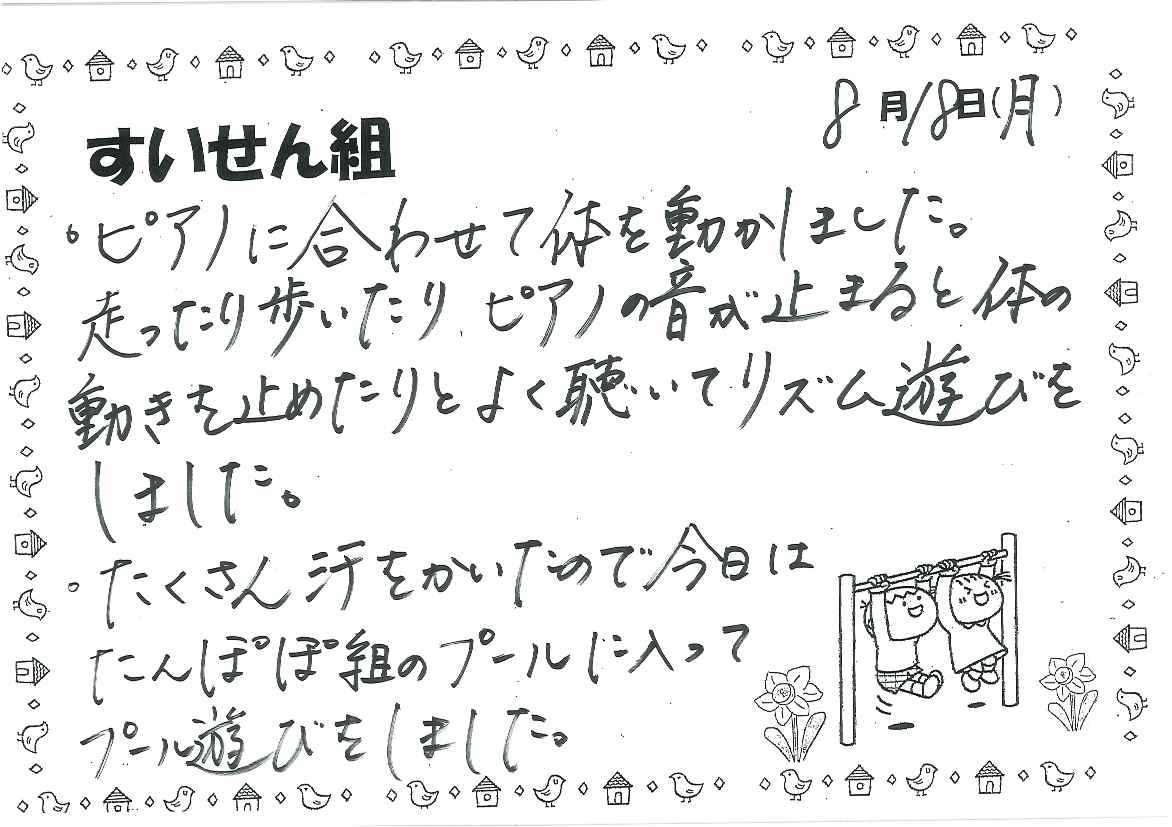 8月18日(月)
すいせん組
・ピアノに合わせて体を動かしました。
走ったり歩いたり、ピアノの音が止まると体の
動きを止めたりとよく聴いてリズム遊びを
しました。
・たくさん汗をかいたので今日は
たんぽぽ組のプールに入って
プール遊びをしました。